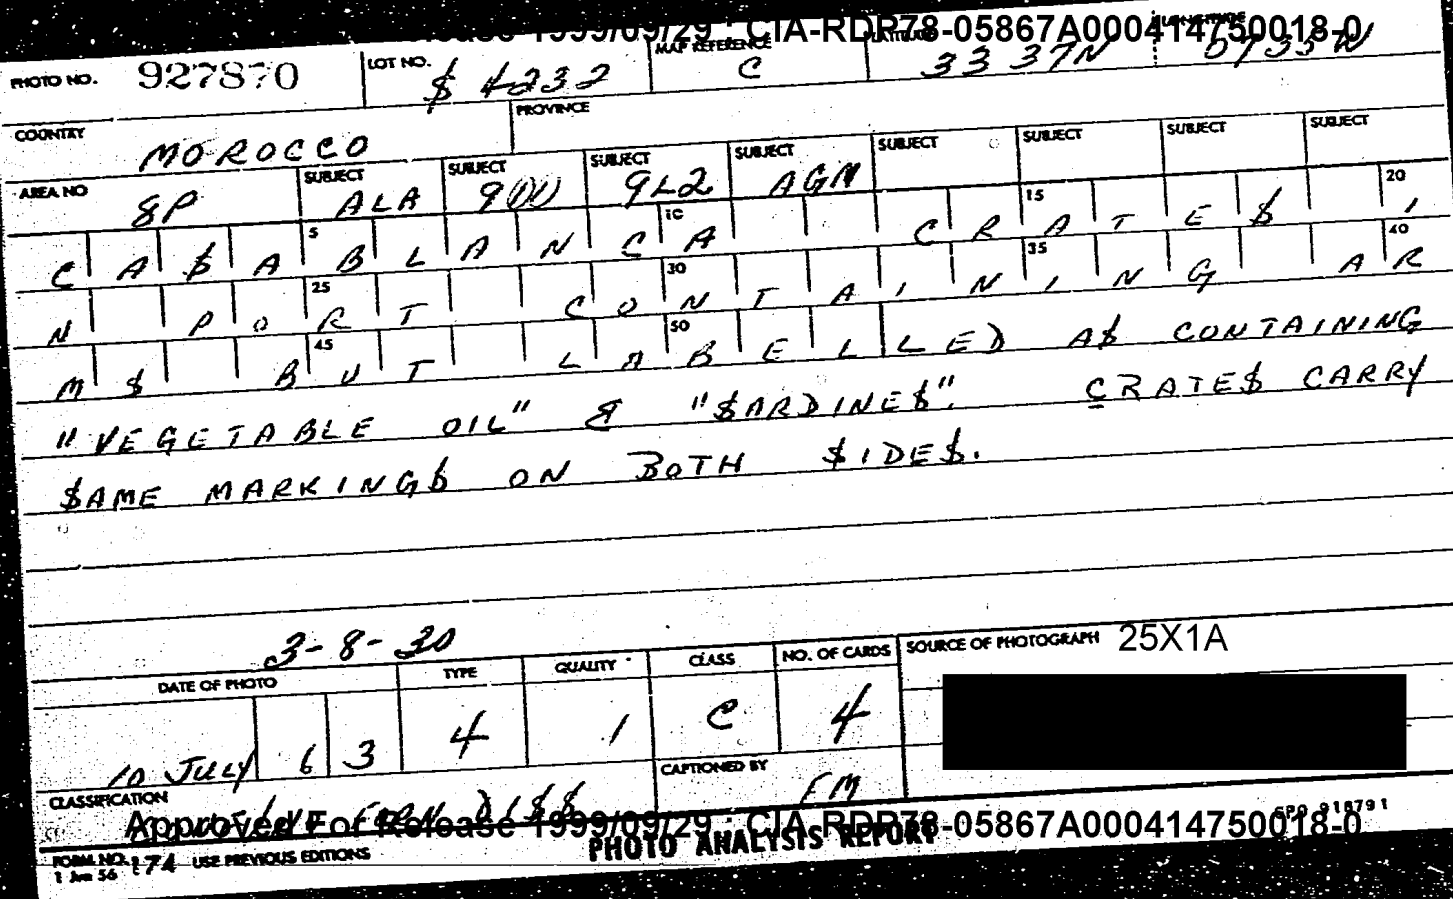 1999/09/29 : CIA-RDP78-05867A000414750018-0
PHOTO NO. 927870 LOT NO. $ 4232 MAP REFERENCE C LATITUDE 33 37N LONGITUDE 0735W
COUNTRY MOROCCO PROVINCE
AREA NO 8P SUBJECT ALA SUBJECT SUBJECT 9L2 SUBJECT AGM SUBJECT SUBJECT SUBJECT SUBJECT
CA$ABLANCA CRATE$ I
N PORT CONTAINING AR
M$ BUT LABELLED A$ CONTAINING
"VEGETABLE OIL" & "$ARDINE$". CRATE$ CARRY
$AME MARKING$ ON BOTH $IDE$.
3-8-30
DATE OF PHOTO TYPE QUALITY CLASS NO. OF CARDS SOURCE OF PHOTOGRAPH 25X1A
10 JULY 63 4 1 C 4
CAPTIONED BY FM
CLASSIFICATION
Approved For Release 1999/09/29 : CIA-RDP78-05867A000414750018-0
FORM NO. 174 USE PREVIOUS EDITIONS PHOTO ANALYSIS REPORT GPO 918791
1 Jun 56